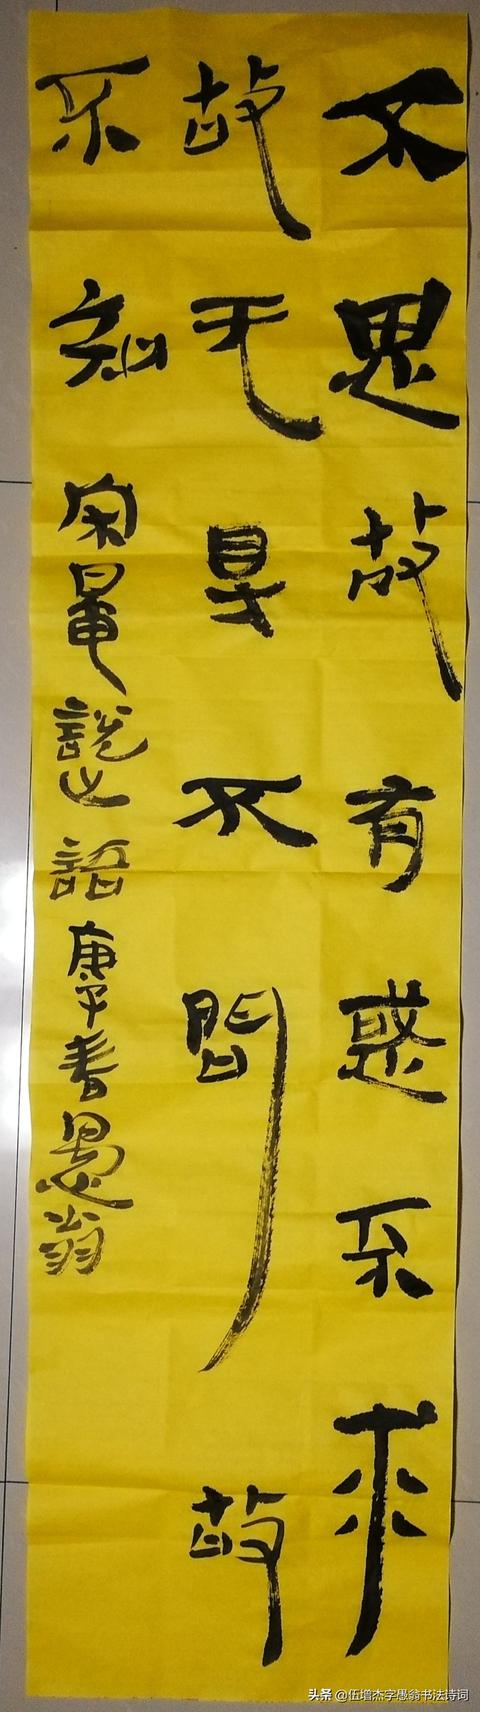 不思故有惑不求
故无㝵不問故
不知 宋鼂說之語 庚子春愚翁
头条 @伍增杰字愚翁书法诗词